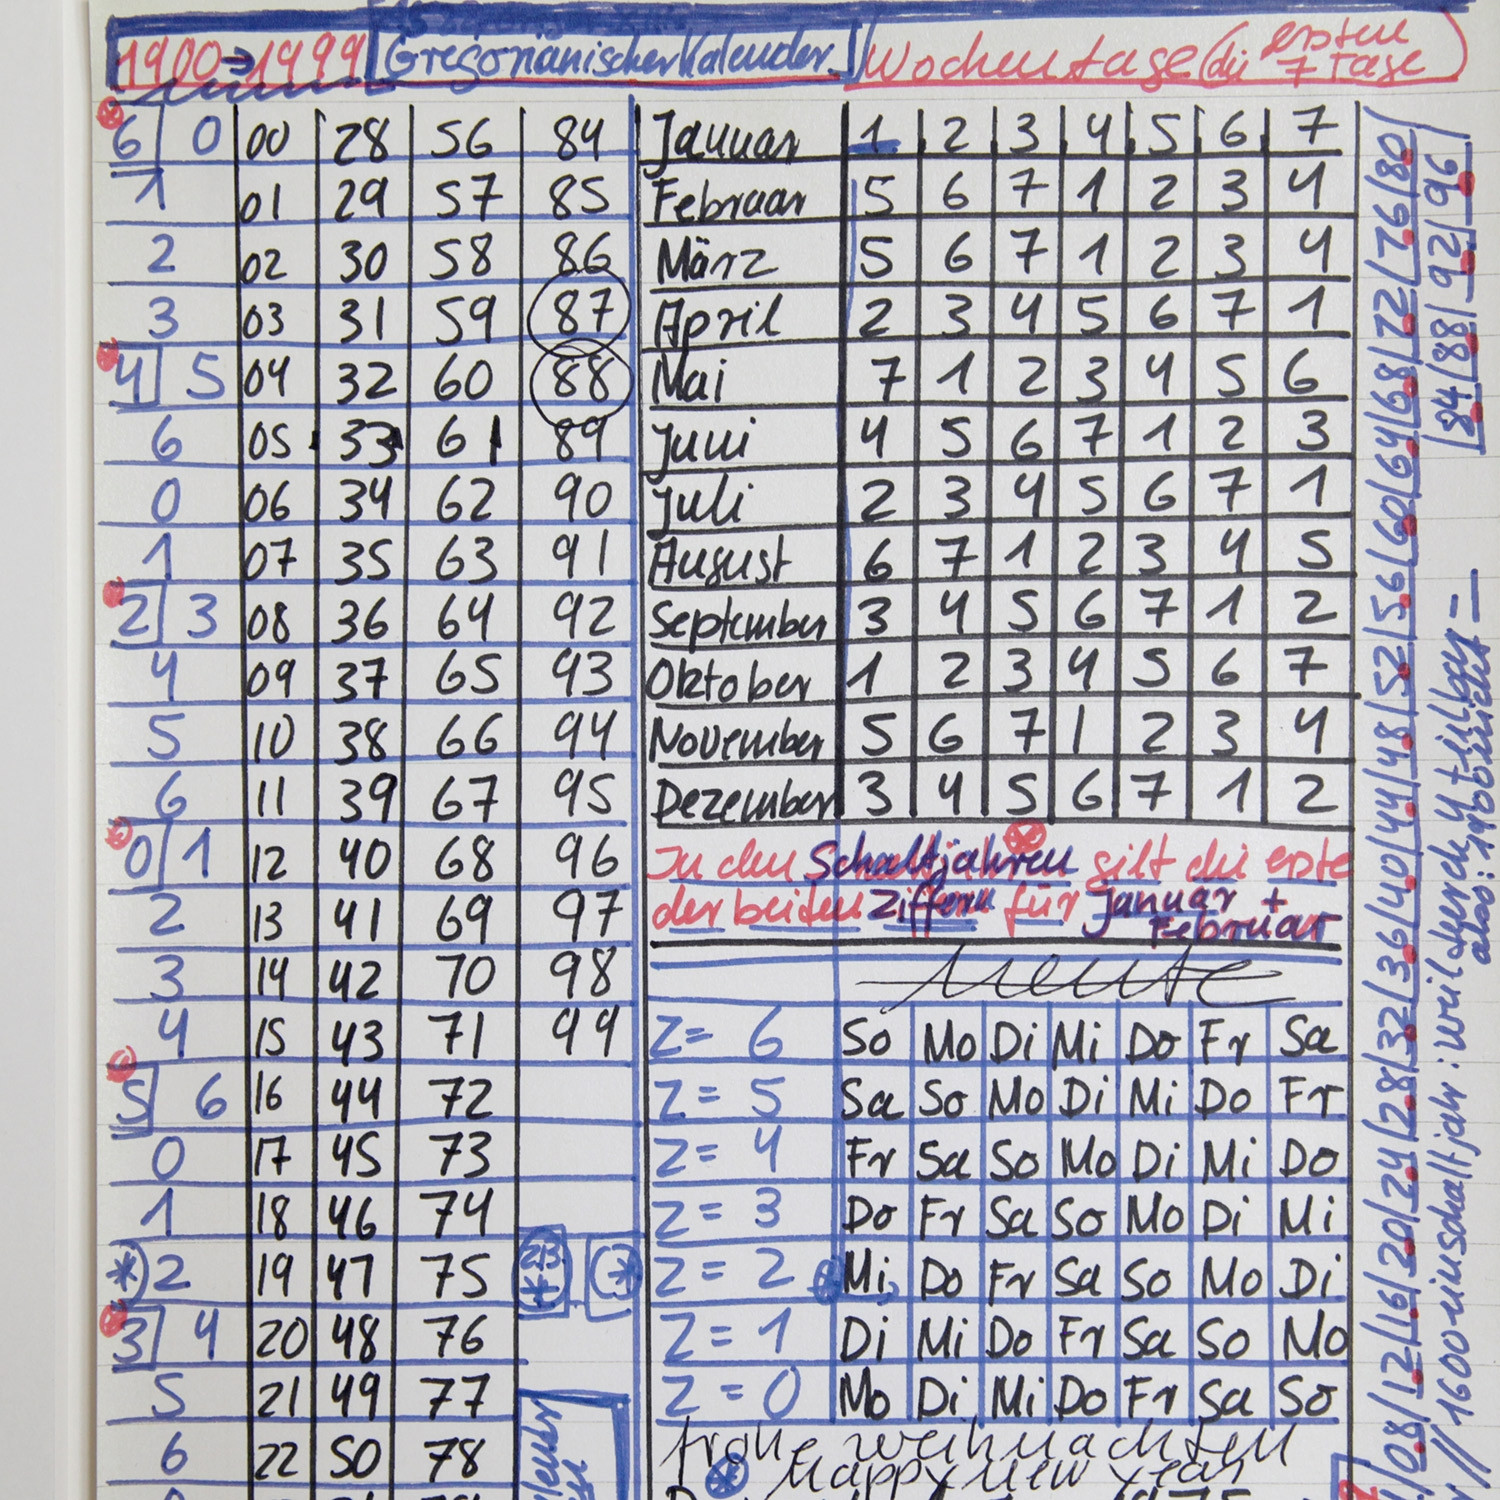 1900→1999 Gregorianischer Kalender. Wochentage (die ersten 7 Tage)
6 0 00 28 56 84 Januar 1 2 3 4 5 6 7
1 01 29 57 85 Februar 5 6 7 1 2 3 4
2 02 30 58 86 März 5 6 7 1 2 3 4
3 03 31 59 87 April 2 3 4 5 6 7 1
4 5 04 32 60 88 Mai 7 1 2 3 4 5 6
6 05 33 61 89 Juni 4 5 6 7 1 2 3
0 06 34 62 90 Juli 2 3 4 5 6 7 1
1 07 35 63 91 August 6 7 1 2 3 4 5
2 3 08 36 64 92 September 3 4 5 6 7 1 2
4 09 37 65 93 Oktober 1 2 3 4 5 6 7
5 10 38 66 94 November 5 6 7 1 2 3 4
6 11 39 67 95 Dezember 3 4 5 6 7 1 2
0 1 12 40 68 96 In den Schaltjahren gilt die erste
2 13 41 69 97 der beiden Ziffern für Januar + Februar
3 14 42 70 98 heute
4 15 43 71 99 Z= 6 So Mo Di Mi Do Fr Sa
5 6 16 44 72 Z= 5 Sa So Mo Di Mi Do Fr
0 17 45 73 Z= 4 Fr Sa So Mo Di Mi Do
1 18 46 74 Z= 3 Do Fr Sa So Mo Di Mi
2 19 47 75 Z= 2 Mi Do Fr Sa So Mo Di
3 4 20 48 76 Z= 1 Di Mi Do Fr Sa So Mo
5 21 49 77 Z= 0 Mo Di Mi Do Fr Sa So
6 22 50 78 frohe weihnachten
Happy new year
08/12/16/20/24/28/32/36/40/44/48/52/56/60/64/68/72/76/80
84/88/92/96
// 1600 ein Schaltjahr: weil durch 4 teilbar
also: 1900 nicht